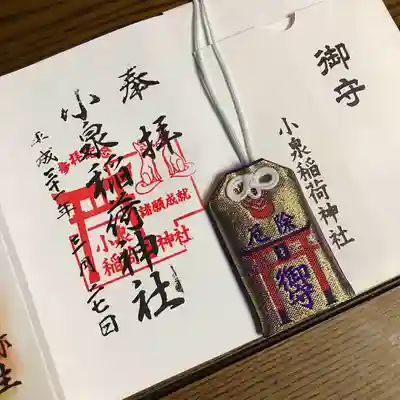 奉拝
小泉稲荷神社
平成三十一年三月二七日
参拝記念
諸願成就
小泉
稲荷神社
御守
小泉稲荷神社
厄除
御守
弥生